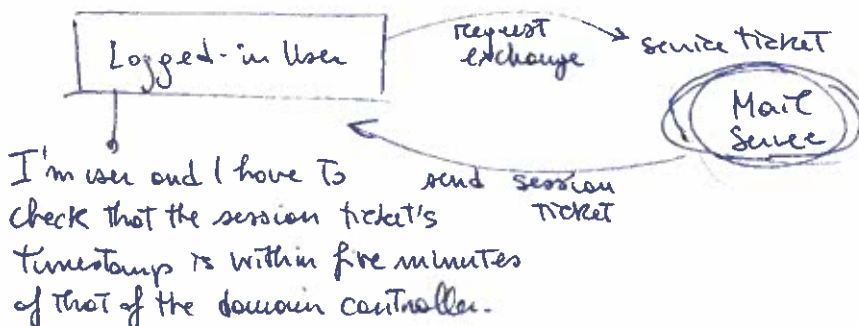 Logged-in User
request
exchange
service ticket
Mail
Server
send session
ticket
I'm user and I have to
check that the session ticket's
timestamp is within five minutes
of that of the domain controller.